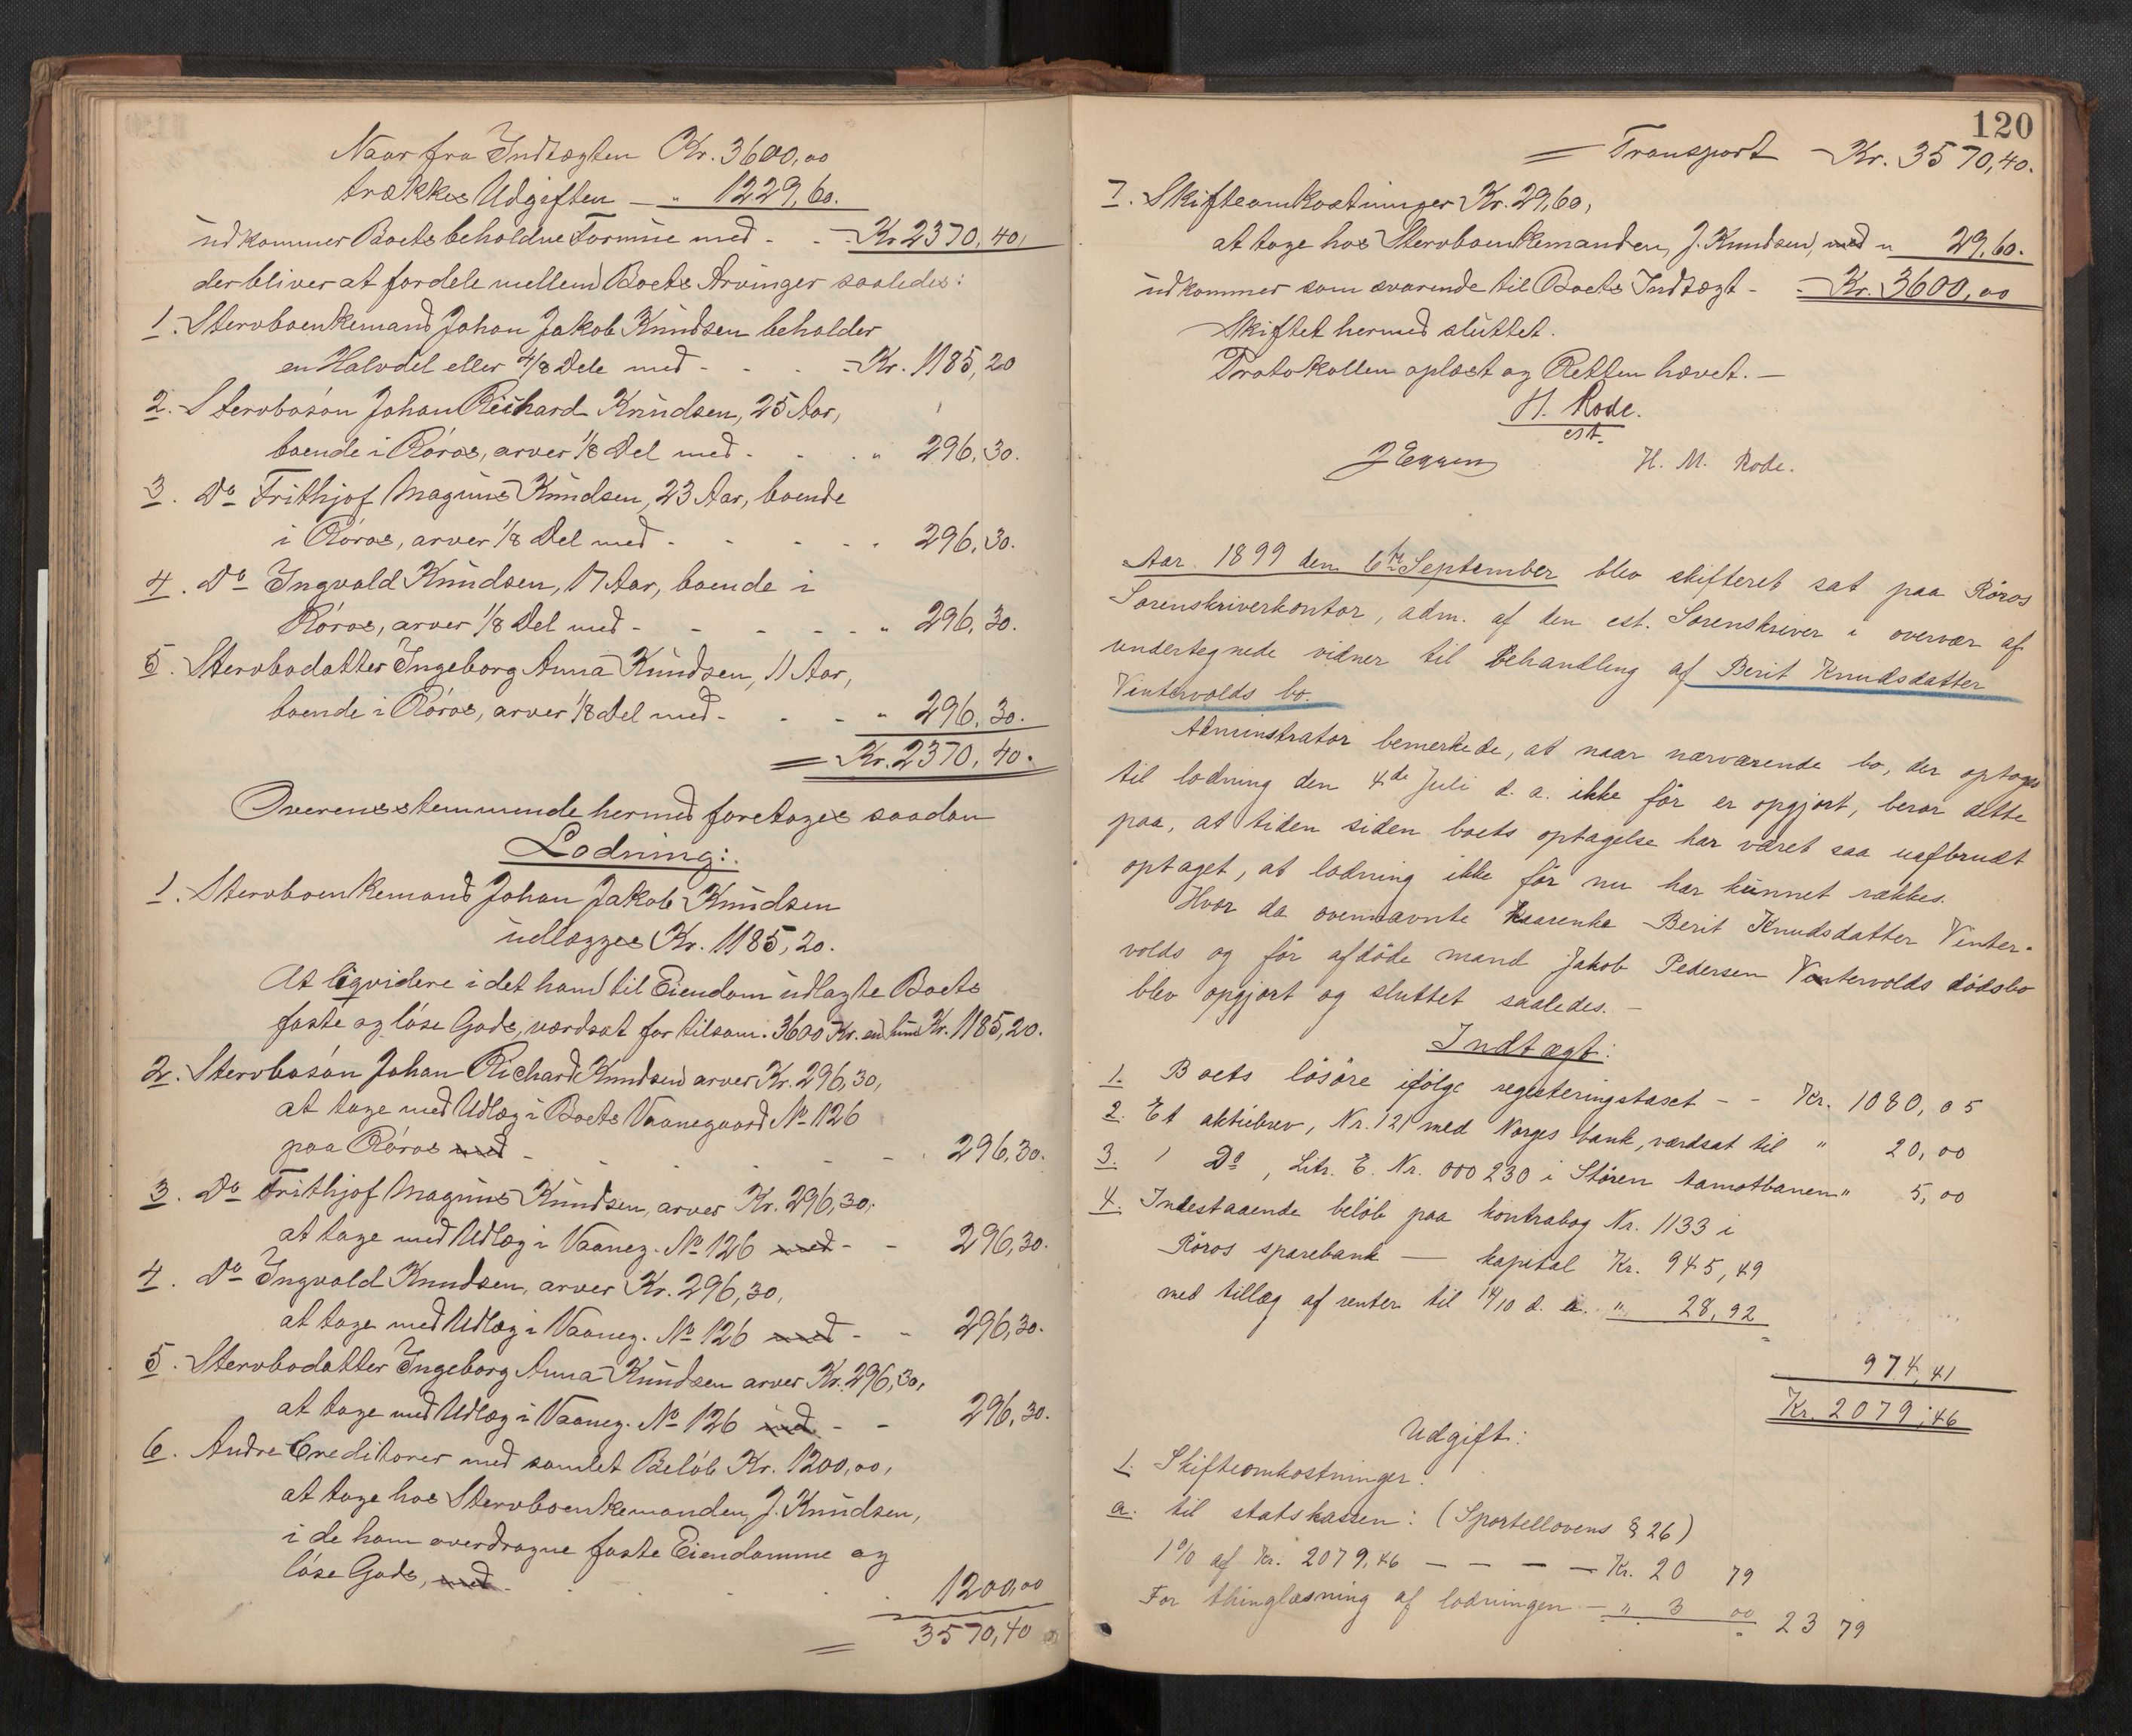 Naar fra Indtægten Kr. 3600,00
trækkes Udgiften — „ 1229,60.
udkommer Boets beholdne Formue med - - - Kr 2370,40,
der bliver at fordele mellem Boets Arvinger saaledes:
1. Stervboenkemand Johan Jakob Knudsen beholder
en Halvdel eller 4/8 Dele med - - - Kr. 1185,20
2. Stervbosön Johan Richard Knudsen, 25 Aar,
boende i Röros, arver 1/8 Del med - - - „ 296,30.
3. Do Frithjof Magnus Knudsen, 23 Aar, boende
i Röros, arver 1/8 Del med - - - - - „ 296,30.
4. Do Ingvald Knudsen, 17 Aar, boende i
Röros, arver 1/8 Del med - - - - - „ 296,30.
5. Stervbodatter Ingeborg Anna Knudsen, 11 Aar,
boende i Röros, arver 1/8 Del med - - - „ 296,30.
= Kr. 2370,40.
Overensstemmende hermed foretages saadan
Lodning:
1. Stervboenkemand Johan Jakob Knudsen
udlægges Kr. 1185,20.
At liqvidere i det ham til Eiendom udlagte Boets
faste og löse Gods, værdsat for tilsam. 3600 Kr. Kr. 1185,20.
2. Stervbosön Johan Richard Knudsen arver Kr. 296,30,
at tage med Udlæg i Boets Vaanegaard No 126
paa Röros med - - - - - 296,30.
3. Do Frithjof Magnus Knudsen, arver Kr. 296,30,
at tage med Udlæg i Vaaneg. No 126 med - - 296,30.
4. Do Ingvald Knudsen, arver Kr. 296,30,
at tage med Udlæg i Vaaneg. No 126 med - - 296,30.
5. Stervbodatter Ingeborg Anna Knudsen arver Kr. 296,30,
at tage med Udlæg i Vaaneg. No 126 med - - 296,30.
6. Andre Creditorer med samlet Belöb Kr. 1200,00,
at tage hos Stervboenkemanden, J. Knudsen,
i de ham overdragne faste Eiendomme og
löse Gods, med - - - - 1200,00
= 3570,40
120
= Transport - Kr. 3570,40.
7. Skifteomkostninger Kr. 29,60,
at tage hos Stervboenkemanden, J. Knudsen, med „ 29,60.
udkommer som svarende til Boets Indtægt - - Kr. 3600,00
Skiftet hermed sluttet.
Protokollen oplæst og Retten hævet. —
H. Rode.
est.
J Eggen H. M. Rode.
Aar 1899 den 6te September blev skifteret sat paa Röros
Sorenskriverkontor, adm. af den est. Sorenskriver i overvær af
undertegnede vidner til Behandling af Berit Knudsdatter
Vintervolds bo.
Adminstrator bemerkede, at naar nærværende bo, der optoges
til lodning den 4de Juli d. a. ikke för er opgjort, beror dette
paa, at tiden siden boets optagelse har været saa uafbrudt
optaget, at lodning ikke för nu har kunnet rækkes.
Hvor da ovennævnte kaarenke Berit Knudsdatter Vinter-
volds og för afdöde mand Jakob Pedersen Vintervolds dödsbo
blev opgjort og sluttet saaledes. -
Indtægt:
1. Boets lösöre ifölge registeringstaxt - - Kr. 1080,05
2. Et aktiebrev, Nr. 121 med Norges bank, værdsat til „ 20,00
3. 1 Do, Litr. E. Nr. 000230 i Stören Aamotbanen „ 5,00
4. Indestaaende belöb paa kontrabog Nr. 1133 i
Röros sparebank — kapital Kr. 945,49
med tillæg af renter til 14/10 d. a. „ 28,92
974,41
Kr. 2079,46
Udgift:
1. Skifteomkostninger.
a. til statskassen: (Sportellovens § 26)
1% af Kr. 2079,46 — — — — Kr. 20 79
For thinglæsning af lodningen — „ 3 00 23 79